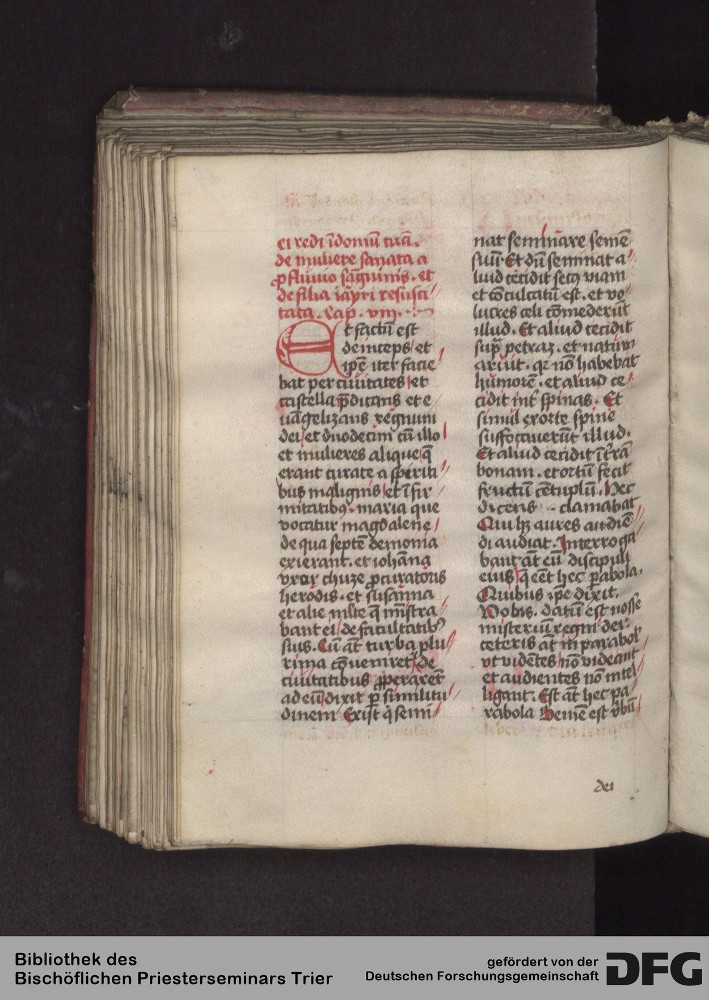 ei redi īdomū tuā.
de muliere sanata a
ꝓfluuio sāguinis. et
de filia iayri resusci
tata. Cap. viij.
Et factū est
deinceps et
ip̄e iter facie
bat per ciuitates et
castella p̄dicans et e
uāgelizans regnum
dei et duodecim cū illo
et mulieres alique q̄
erant curate a spiriti
bus malignis et īfir
mitatibꝰ. maria que
vocatur magdalene
de qua septē demonia
exierant. et iohāna
vxor chuze ꝓcuratoris
herodis. et susanna
et alie ml̄te q̄ mīstra
bant ei de facultatibꝰ
suis. Cū aūt turba plu
rima cōueniret et de
ciuitatibus ꝓperarēt
ad eū dixit ꝑ similitu
dinem Exijt q̇ semi
nat seminare semē
suū. Et dū seminat a
liud cecidit secꝰ viam
et cōculcatū est. et vo
lucres celi cōmederūt
illud. Et aliud cecidit
supͣ petraꝫ. et natum
aruit. qꝛ nō habebat
humorē. et aliud ce
cidit int̄ spinas. Et
simul exorte spine
suffocauerūt illud.
Et aliud cecidit ī t̄rā
bonam. et ortū fecit
fructū cētuplū. Hec
dicens clamabat
Qui hꝫ aures audiē
di audiat. Interroga
bant aūt eū discipuli
eius q̄ eēt hec ꝑabola.
Quibus ip̄e dixit.
Vobis datū est nosse
misteriū regni dei.
ceteris aūt in parabol'
vt vidētes nō videant
et audientes nō intel
ligant. Est aūt hec pa
rabola Semē est v̄bū
dei
Bibliothek des
Bischöflichen Priesterseminars Trier
gefördert von der
Deutschen Forschungsgemeinschaft
DFG